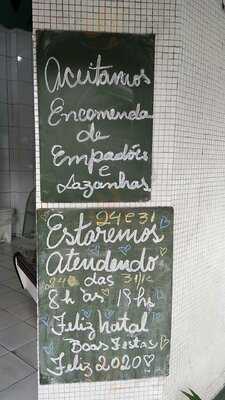 Aceitamos
Encomenda
de
Empadões
e
Lazanhas
24 e 31
Estaremos
Atendendo
24 das 31/12
8h às 19hs
Feliz natal
Boas Festas
Feliz 2020